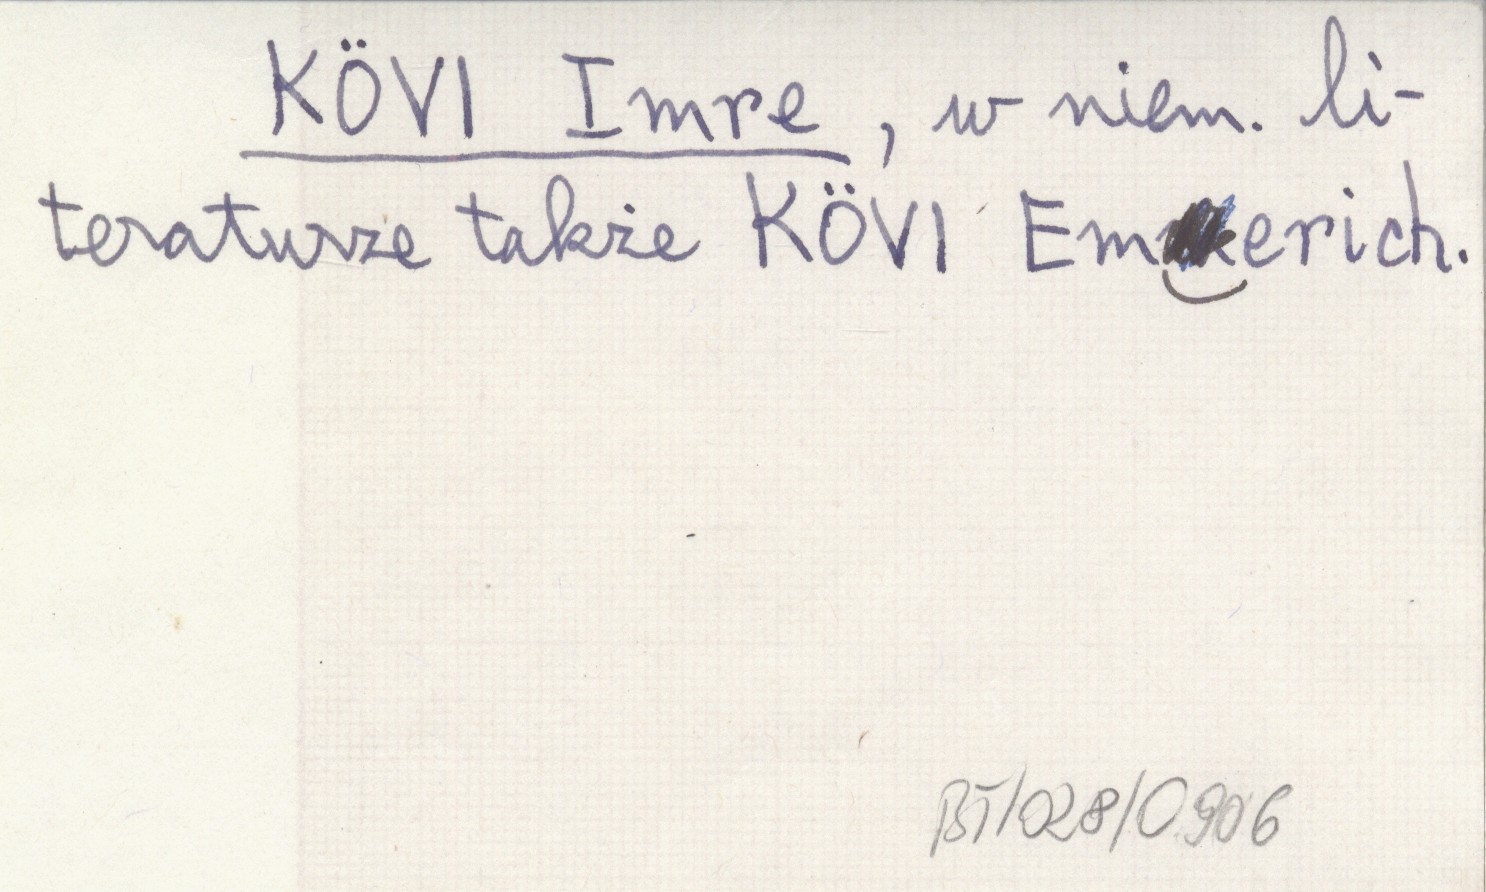 KÖVI Imre, w niem. li-
teraturze także KÖVI Emerich.
BT/028/0906